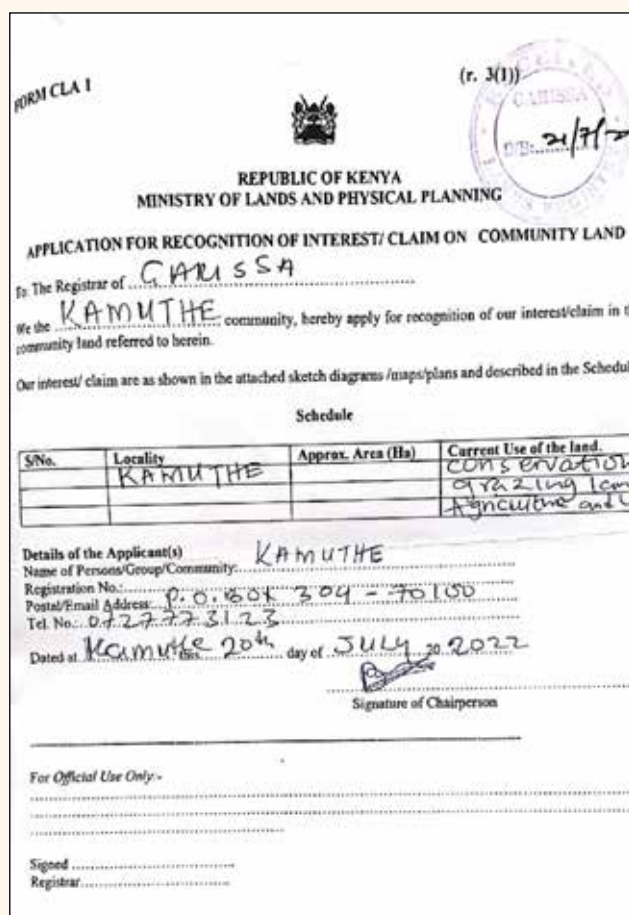 FORM CLA 1
(r. 3(1))
GARISSA
21/7/2
REPUBLIC OF KENYA
MINISTRY OF LANDS AND PHYSICAL PLANNING
APPLICATION FOR RECOGNITION OF INTEREST/ CLAIM ON COMMUNITY LAND
To The Registrar of GARISSA
We the KAMUTHE community, hereby apply for recognition of our interest/claim in
community land referred to herein.
Our interest/ claim are as shown in the attached sketch diagrams /maps/plans and described in the Schedul
Schedule
S/No. Locality Approx. Area (Ha) Current Use of the land.
KAMUTHE conservation
grazing
Agriculture and
Details of the Applicant(s)
Name of Persons/Group/Community: KAMUTHE
Registration No.:
Postal/Email Address: P.O.BOX 304 - 70100
Tel. No.: 0727773123
Dated at Kamuthe this 20th day of JULY 20 2022
Signature of Chairperson
For Official Use Only:-
Signed
Registrar